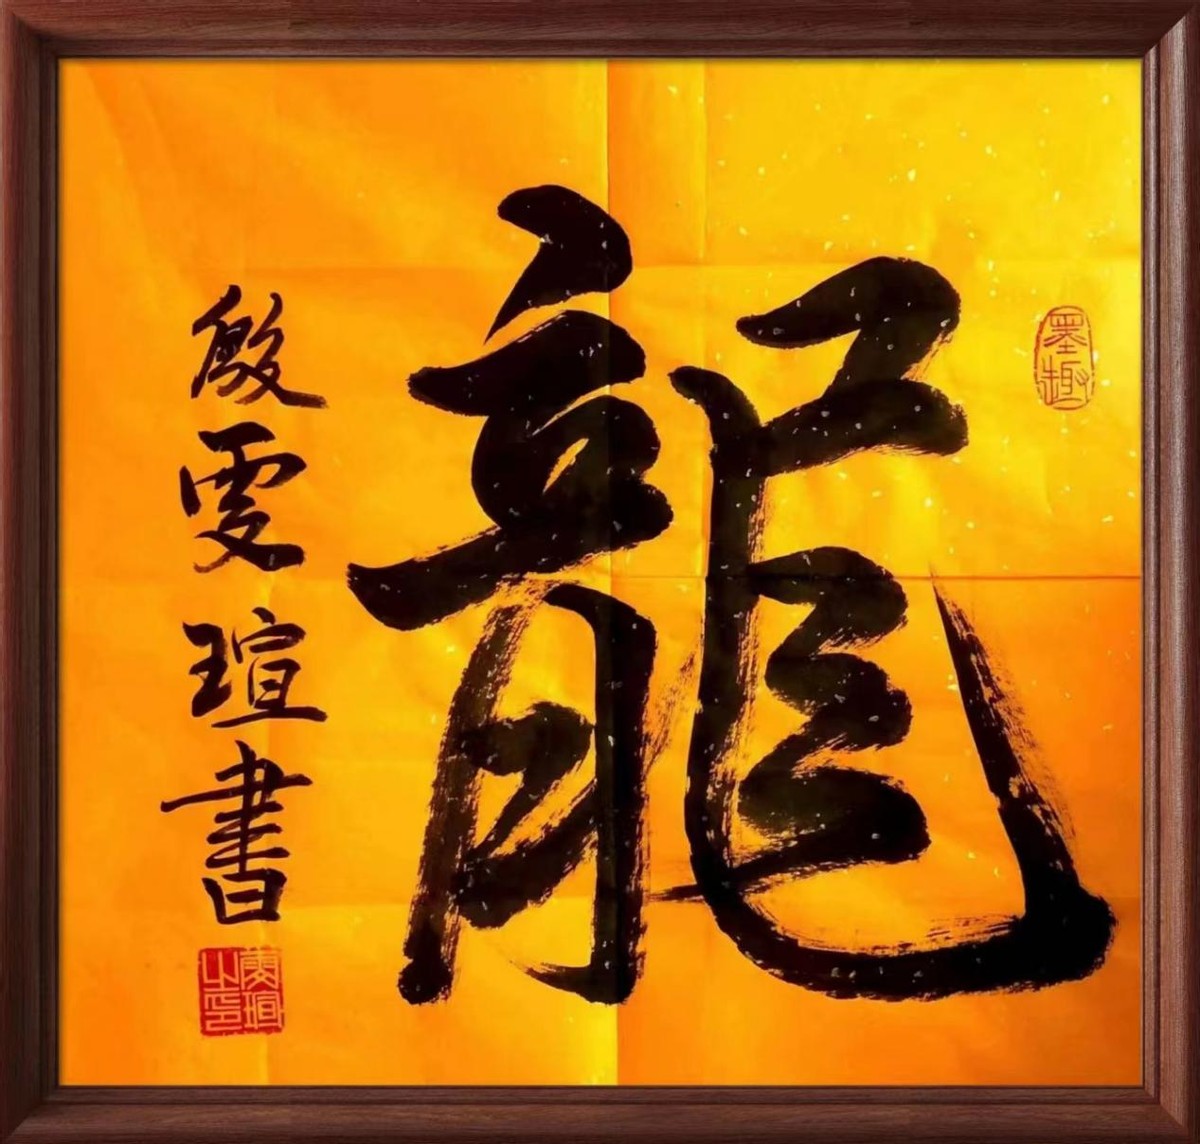 墨趣
龍
殷雯瑄書
雯瑄之印